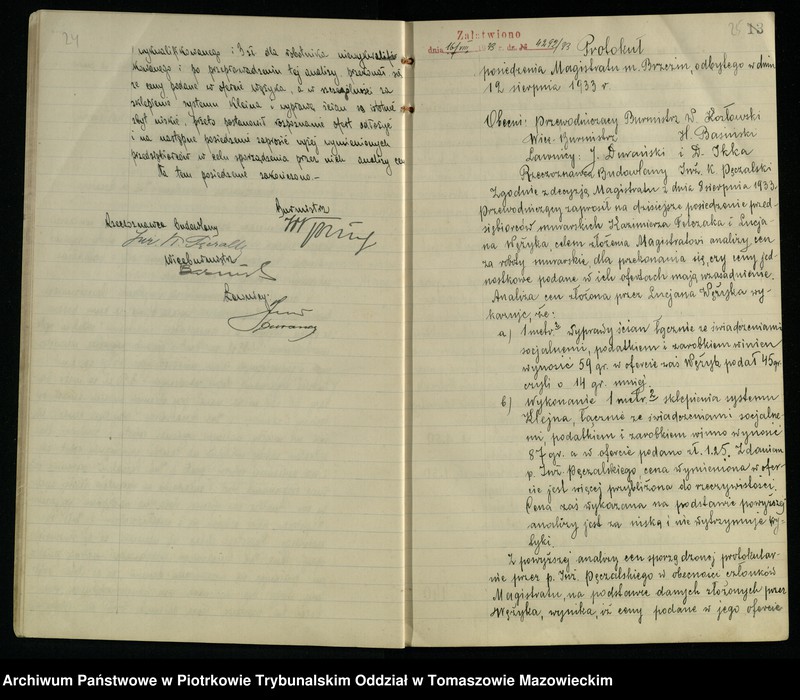 24
wykwalifikowanego i 3 zł dla robotnika niewykwalifi-
kowanego i po przeprowadzeniu tej analizy, przekonał się,
że ceny podane w ofercie Wężyka, a w szczególności za
sklepienie systemu Kleina i wyprawę ścian są istotnie
zbyt niskie, przeto postanowił rozpoznanie ofert odłożyć
i na następne posiedzenie zaprosić wyżej wymienionych
przedsiębiorców w celu sporządzenia przez nich analizy cen
Na tem posiedzenie zakończono.-
Burmistrz
Rzeczoznawca budowlany
Wiceburmistrz
Ławnicy:
13
Załatwiono
dnia 16/VIII 1933 r. dz. № 4292/33
Protokuł
posiedzenia Magistratu m. Brzezin, odbytego w dniu
12 sierpnia 1933 r
Obecni: Przewodniczący Burmistrz W. Kozłowski
Wice-Burmistrz H. Basiński
Ławnicy: J. Durański i D. Ikka
Rzeczoznawca Budowlany Inż. K. Pęczalski
Zgodnie z decyzją Magistratu z dnia 8 sierpnia 1933
Przewodniczący zaprosił na dzisiejsze posiedzenie przed-
siębiorców murarskich Kazimierza Felczaka i Lucja-
na Wężyka, celem złożenia Magistratowi analizy cen
za roboty murarskie, dla przekonania się, czy ceny jed-
nostkowe podane w ich ofertach mają uzasadnienie.
Analiza cen złożona przez Lucjana Wężyka wy-
kazuje, że:
a) 1 metr.² wyprawy ścian łącznie ze świadczeniami
socjalnemi, podatkiem i zarobkiem winien
wynosić 59 gr. w ofercie zaś Wężyk podał 45 gr.
czyli o 14 gr. mniej.
b) Wykonanie 1 metr.² sklepienia systemu
Klejna, łącznie ze świadczeniami socjalne-
mi, podatkiem i zarobkiem winno wynosić
87 gr. a w ofercie podano zł. 1.25. Zdaniem
p. Inż. Pęczalskiego, cena wymieniona w ofer-
cie jest więcej przybliżona do rzeczywistości.
Cena zaś wykazana na podstawie powyższej
analizy jest za niska i nie wytrzymuje kry-
tyki.
Z powyższej analizy cen sporządzonej protokular-
nie przez p. Inż. Pęczalskiego w obecności członków
Magistratu, na podstawie danych złożonych przez
Wężyka, wynika, iż ceny podane w jego ofercie
Archiwum Państwowe w Piotrkowie Trybunalskim Oddział w Tomaszowie Mazowieckim